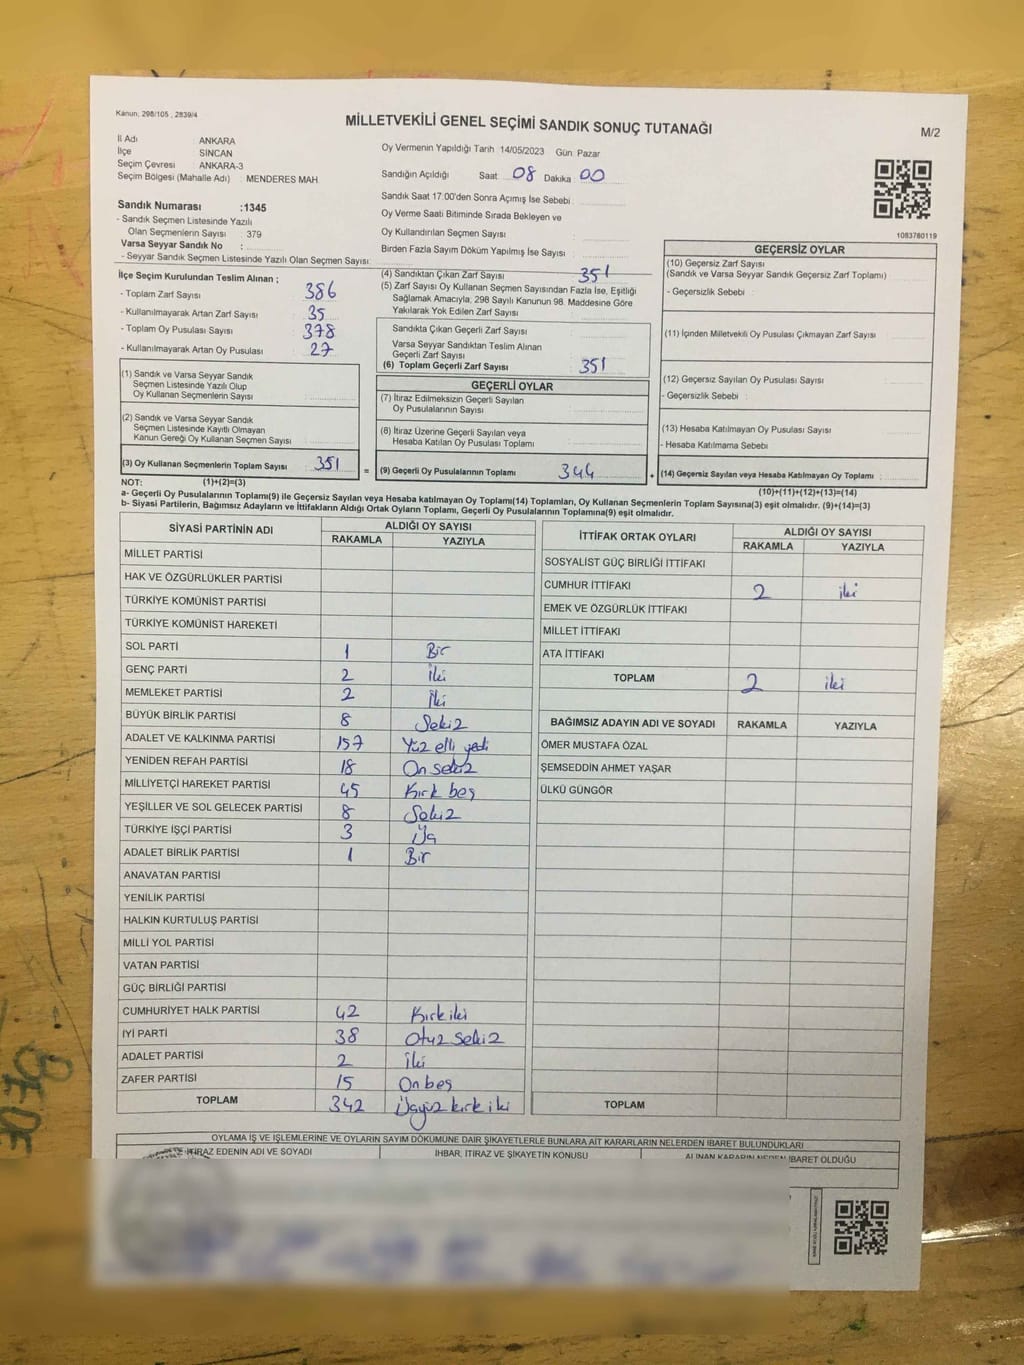 Kanun: 298/105 , 2839/4
MİLLETVEKİLİ GENEL SEÇİMİ SANDIK SONUÇ TUTANAĞI
M/2
İl Adı ANKARA
İlçe SİNCAN
Seçim Çevresi ANKARA-3
Seçim Bölgesi (Mahalle Adı) : MENDERES MAH.
Oy Vermenin Yapıldığı Tarih 14/05/2023 Gün: Pazar
Sandığın Açıldığı Saat: 08 Dakika 00
Sandık Saat 17:00'den Sonra Açımış İse Sebebi :
Oy Verme Saati Bitiminde Sırada Bekleyen ve
Oy Kullandırılan Seçmen Sayısı :
Birden Fazla Sayım Döküm Yapılmış İse Sayısı :
1083780119
Sandık Numarası :1345
- Sandık Seçmen Listesinde Yazılı
Olan Seçmenlerin Sayısı : 379
Varsa Seyyar Sandık No :
- Seyyar Sandık Seçmen Listesinde Yazılı Olan Seçmen Sayısı:
İlçe Seçim Kurulundan Teslim Alınan ;
- Toplam Zarf Sayısı : 386
- Kullanılmayarak Artan Zarf Sayısı : 35
- Toplam Oy Pusulası Sayısı : 378
- Kullanılmayarak Artan Oy Pusulası : 27
(1) Sandık ve Varsa Seyyar Sandık
Seçmen Listesinde Yazılı Olup
Oy Kullanan Seçmenlerin Sayısı :
(2) Sandık ve Varsa Seyyar Sandık
Seçmen Listesinde Kayıtlı Olmayan
Kanun Gereği Oy Kullanan Seçmen Sayısı :
(3) Oy Kullanan Seçmenlerin Toplam Sayısı : 351
(4) Sandıktan Çıkan Zarf Sayısı : 351
(5) Zarf Sayısı Oy Kullanan Seçmen Sayısından Fazla İse, Eşitliği
Sağlamak Amacıyla, 298 Sayılı Kanunun 98. Maddesine Göre
Yakılarak Yok Edilen Zarf Sayısı :
Sandıkta Çıkan Geçerli Zarf Sayısı :
Varsa Seyyar Sandıktan Teslim Alınan
Geçerli Zarf Sayısı :
(6) Toplam Geçerli Zarf Sayısı : 351
GEÇERLİ OYLAR
(7) İtiraz Edilmeksizin Geçerli Sayılan
Oy Pusulalarının Sayısı :
(8) İtiraz Üzerine Geçerli Sayılan veya
Hesaba Katılan Oy Pusulası Toplamı :
= (9) Geçerli Oy Pusulalarının Toplamı : 344
GEÇERSİZ OYLAR
(10) Geçersiz Zarf Sayısı
(Sandık ve Varsa Seyyar Sandık Geçersiz Zarf Toplamı) :
- Geçersizlik Sebebi :
(11) İçinden Milletvekili Oy Pusulası Çıkmayan Zarf Sayısı :
(12) Geçersiz Sayılan Oy Pusulası Sayısı :
- Geçersizlik Sebebi :
(13) Hesaba Katılmayan Oy Pusulası Sayısı :
- Hesaba Katılmama Sebebi :
+ (14) Geçersiz Sayılan veya Hesaba Katılmayan Oy Toplamı :
NOT: (1)+(2)=(3)
(10)+(11)+(12)+(13)=(14)
a- Geçerli Oy Pusulalarının Toplamı(9) ile Geçersiz Sayılan veya Hesaba katılmayan Oy Toplamı(14) Toplamları, Oy Kullanan Seçmenlerin Toplam Sayısına(3) eşit olmalıdır. (9)+(14)=(3)
b- Siyasi Partilerin, Bağımsız Adayların ve İttifakların Aldığı Ortak Oyların Toplamı, Geçerli Oy Pusulalarının Toplamına(9) eşit olmalıdır.
SİYASİ PARTİNİN ADI ALDIĞI OY SAYISI
RAKAMLA YAZIYLA
MİLLET PARTİSİ
HAK VE ÖZGÜRLÜKLER PARTİSİ
TÜRKİYE KOMÜNİST PARTİSİ
TÜRKİYE KOMÜNİST HAREKETİ
SOL PARTİ 1 Bir
GENÇ PARTİ 2 İki
MEMLEKET PARTİSİ 2 İki
BÜYÜK BİRLİK PARTİSİ 8 Sekiz
ADALET VE KALKINMA PARTİSİ 157 Yüz elli yedi
YENİDEN REFAH PARTİSİ 18 On sekiz
MİLLİYETÇİ HAREKET PARTİSİ 45 Kırk beş
YEŞİLLER VE SOL GELECEK PARTİSİ 8 Sekiz
TÜRKİYE İŞÇİ PARTİSİ 3 Üç
ADALET BİRLİK PARTİSİ 1 Bir
ANAVATAN PARTİSİ
YENİLİK PARTİSİ
HALKIN KURTULUŞ PARTİSİ
MİLLİ YOL PARTİSİ
VATAN PARTİSİ
GÜÇ BİRLİĞİ PARTİSİ
CUMHURİYET HALK PARTİSİ 42 Kırk iki
İYİ PARTİ 38 Otuz sekiz
ADALET PARTİSİ 2 İki
ZAFER PARTİSİ 15 On beş
TOPLAM 342 Üçyüz kırk iki
İTTİFAK ORTAK OYLARI ALDIĞI OY SAYISI
RAKAMLA YAZIYLA
SOSYALİST GÜÇ BİRLİĞİ İTTİFAKI
CUMHUR İTTİFAKI 2 iki
EMEK VE ÖZGÜRLÜK İTTİFAKI
MİLLET İTTİFAKI
ATA İTTİFAKI
TOPLAM 2 iki
BAĞIMSIZ ADAYIN ADI VE SOYADI RAKAMLA YAZIYLA
ÖMER MUSTAFA ÖZAL
ŞEMSEDDİN AHMET YAŞAR
ÜLKÜ GÜNGÖR
TOPLAM
OYLAMA İŞ VE İŞLEMLERİNE VE OYLARIN SAYIM DÖKÜMÜNE DAİR ŞİKAYETLERLE BUNLARA AİT KARARLARIN NELERDEN İBARET BULUNDUKLARI
İTİRAZ EDENİN ADI VE SOYADI İHBAR, İTİRAZ VE ŞİKAYETİN KONUSU ALINAN KARARIN NEDEN İBARET OLDUĞU